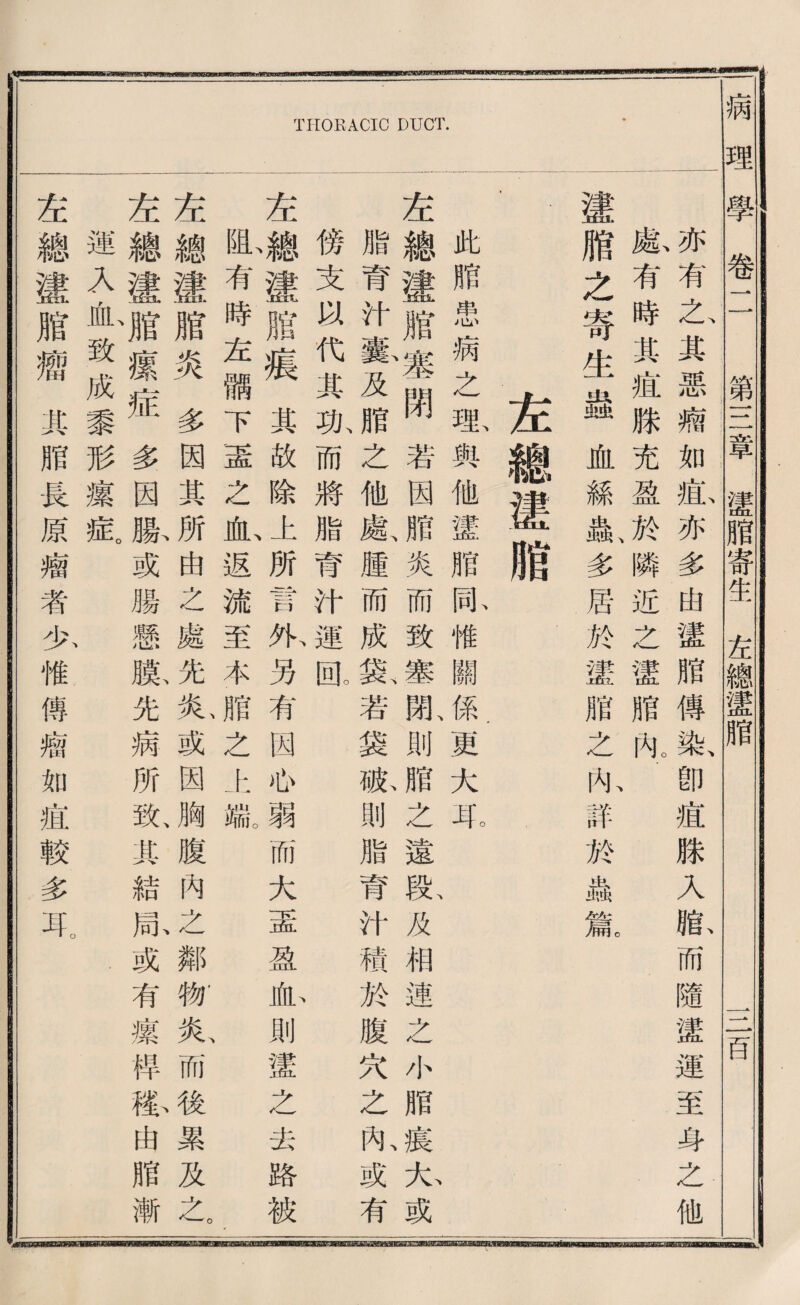 THORACIC DUCT.
病理學 卷二 第三章 㿻脂寄生 左總㿻脂 三百
亦有之、其惡瘤如疽、亦多由㿻脂傳染、卽疽脒入脂、而隨㿻運至身之他
處、有時其疽脒充盈於隣近之㿻脂內。
㿻脂之寄生蟲 血絲蟲、多居於㿻脂之內、詳於蟲篇。
左總㿻脂
此脂患病之理、與他㿻脂同、惟關係更大耳。
左總㿻脂塞閉 若因脂炎而致塞閉、則脂之遠段、及相連之小脂痮大、或
脂育汁囊、及脂之他處、腫而成袋、若袋破、則脂育汁積於腹穴之內、或有
傍支以代其功、而將脂育汁運回。
左總㿻脂痮 其故除上所言外、另有因心弱而大衁盈血、則㿻之去路被
阻、有時左髃下衁之血、返流至本脂之上端。
左總㿻脂炎 多因其所由之處先炎、或因胸腹內之鄰物炎、而後累及之。
左總㿻脂瘰症 多因腸、或腸懸膜、先病所致、其結局、或有瘰桿䅵、由脂漸
運入血、致成黍形瘰症。
左總㿻脂瘤 其脂長原瘤者少、惟傳瘤如疽較多耳。